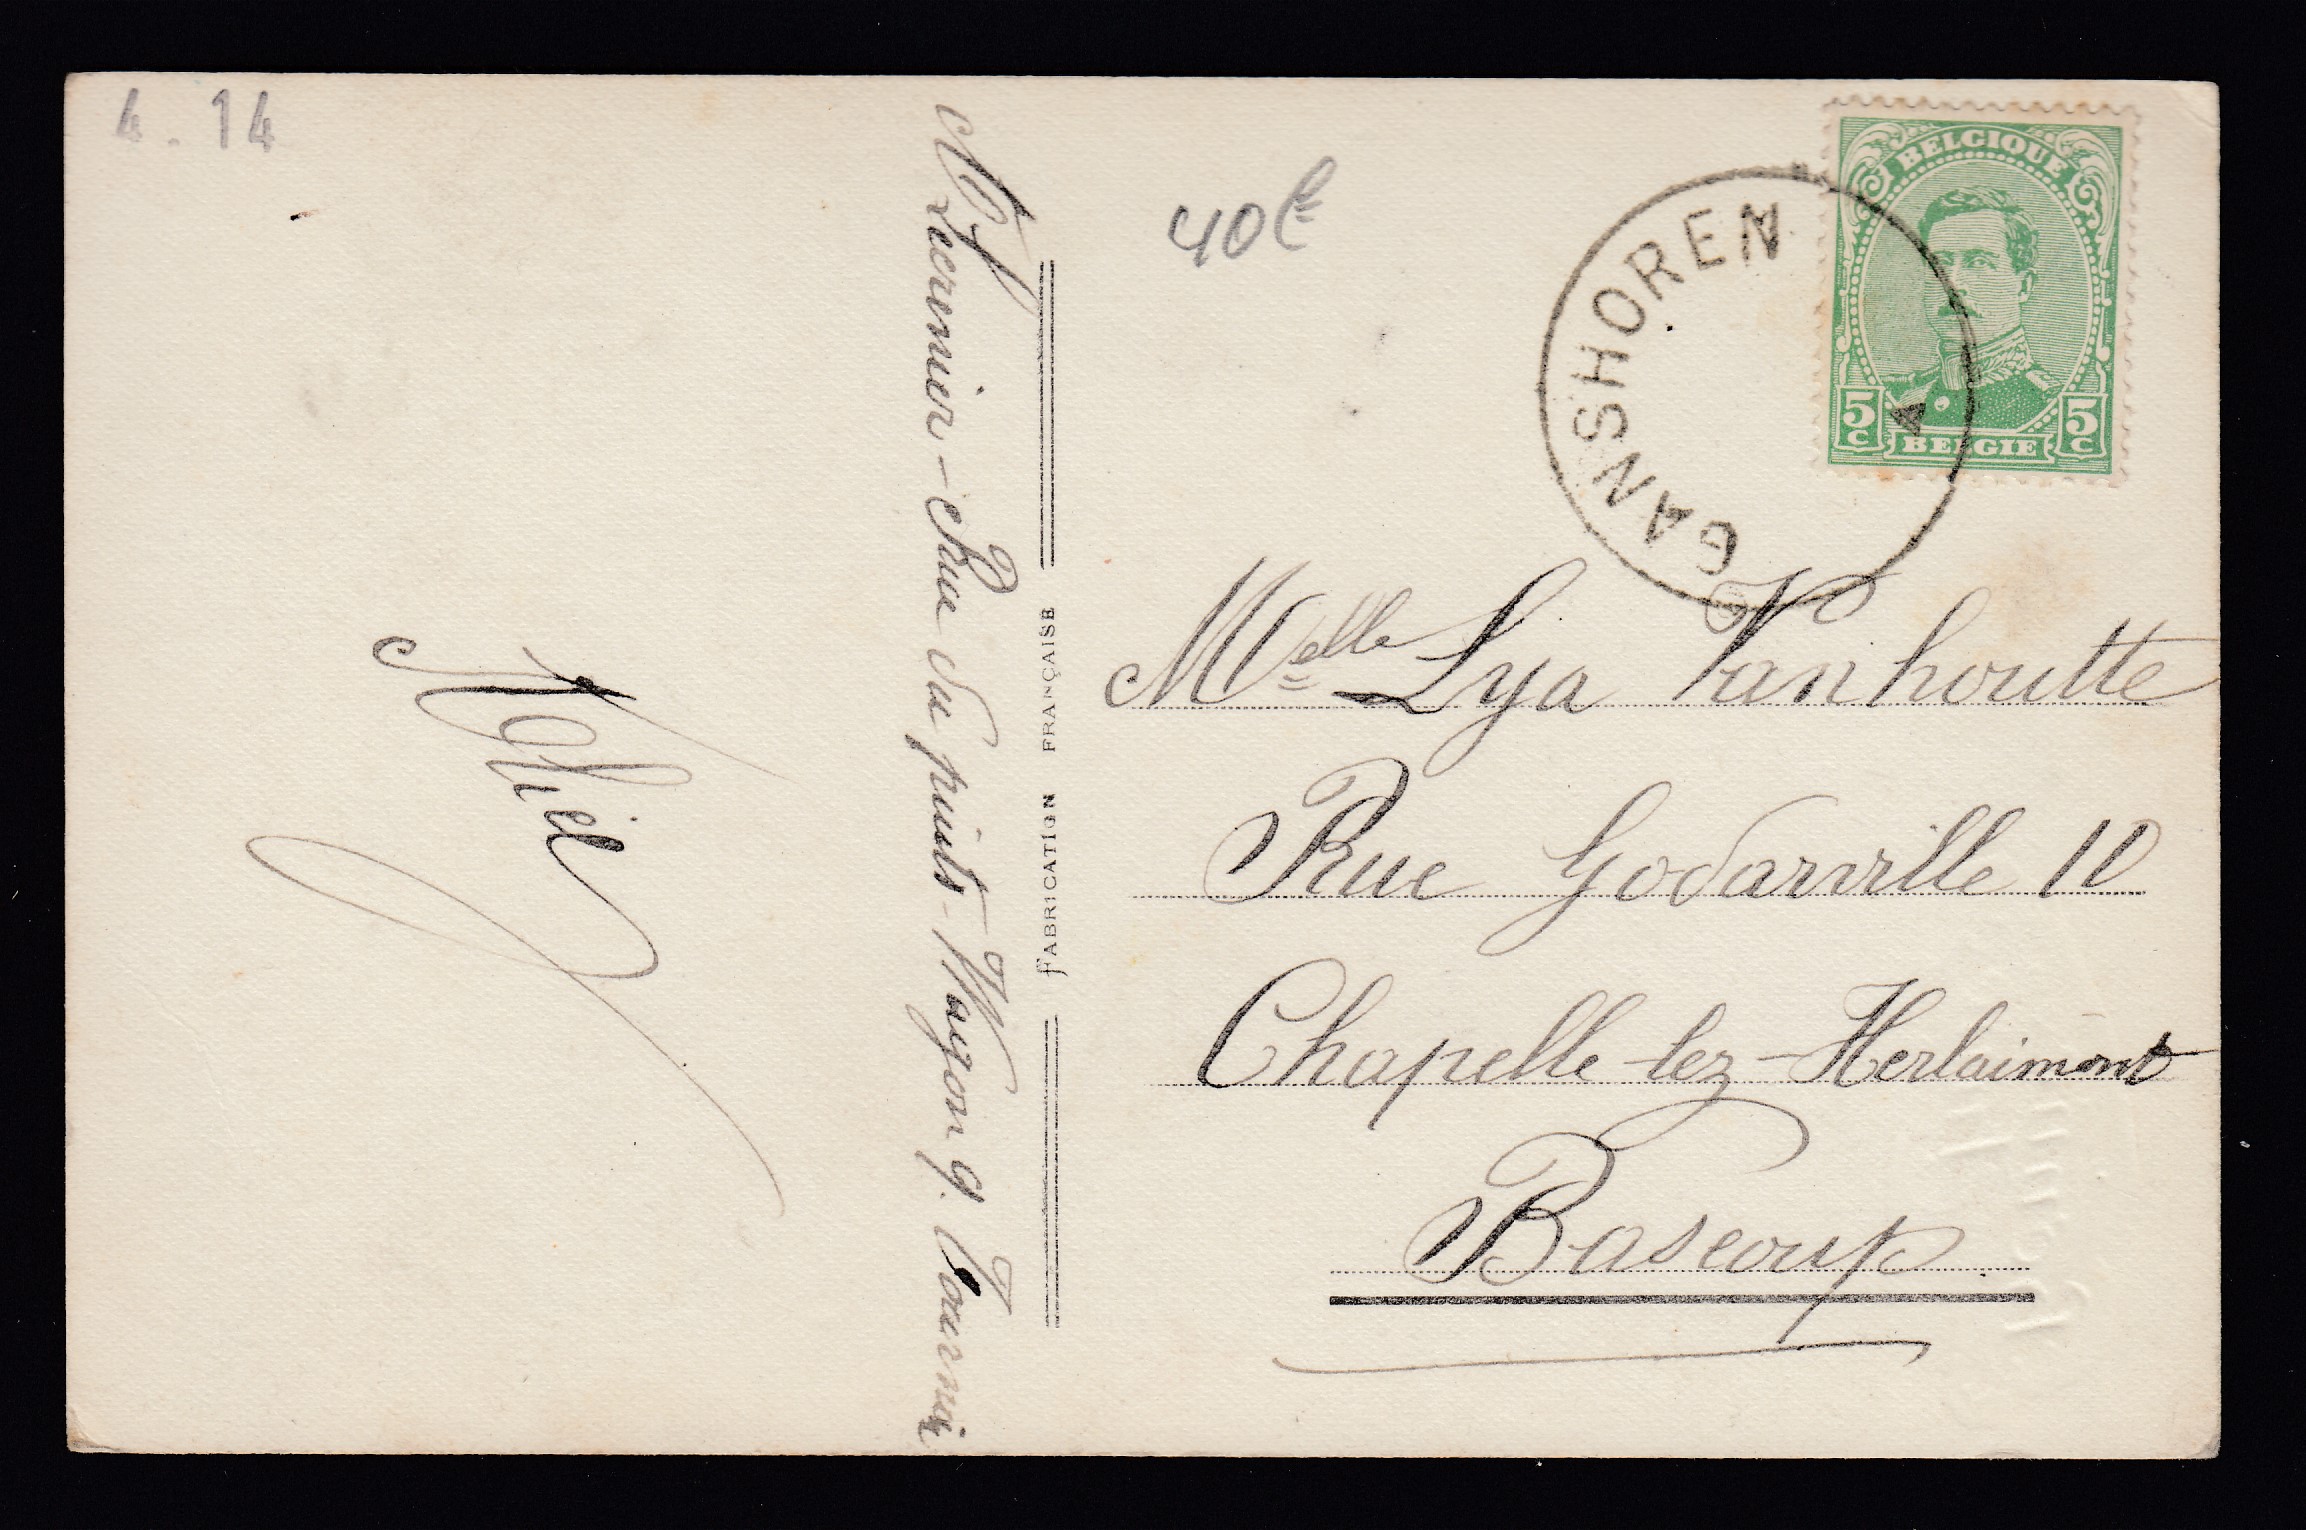 4.14
40€
BELGIQUE
5c 5c
BELGIE
GANSHOREN
Melle Lya Vanhoutte
Rue Godarville 10
Chapelle-lez-Herlaimont
Bascoup
FABRICATION FRANÇAISE
Lecrenier - Rue du puits - Wagon 9. Tournai